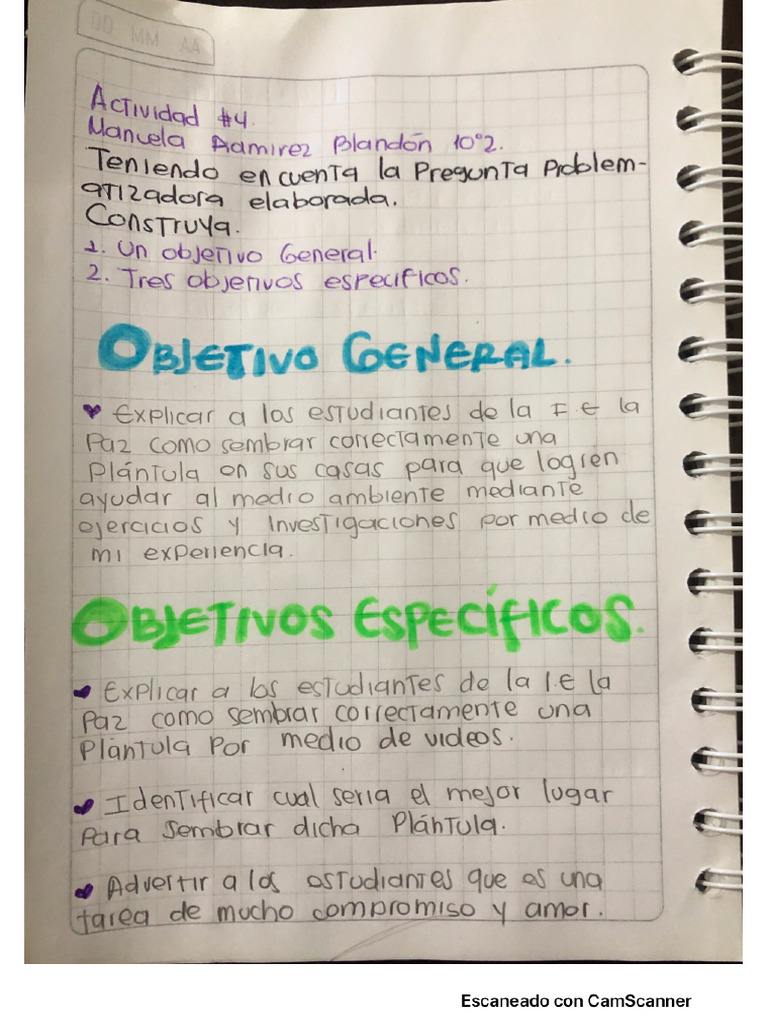 DD MM AA
Actividad #4.
Manuela Ramirez Blandón 10°2.
Teniendo en cuenta la Pregunta Problem-
atizadora elaborada.
Construya.
1. Un objetivo General.
2. Tres objetivos especificos.
Objetivo General.
Explicar a los estudiantes de la I E la
Paz como sembrar correctamente una
Plántula en sus casas para que logren
ayudar al medio ambiente mediante
ejercicios y investigaciones por medio de
mi experiencia.
Objetivos Específicos.
Explicar a los estudiantes de la I.E la
Paz como sembrar correctamente una
Plántula Por medio de videos.
Identificar cual seria el mejor lugar
Para sembrar dicha Plántula.
Advertir a los estudiantes que es una
tarea de mucho compromiso y amor.
Escaneado con CamScanner